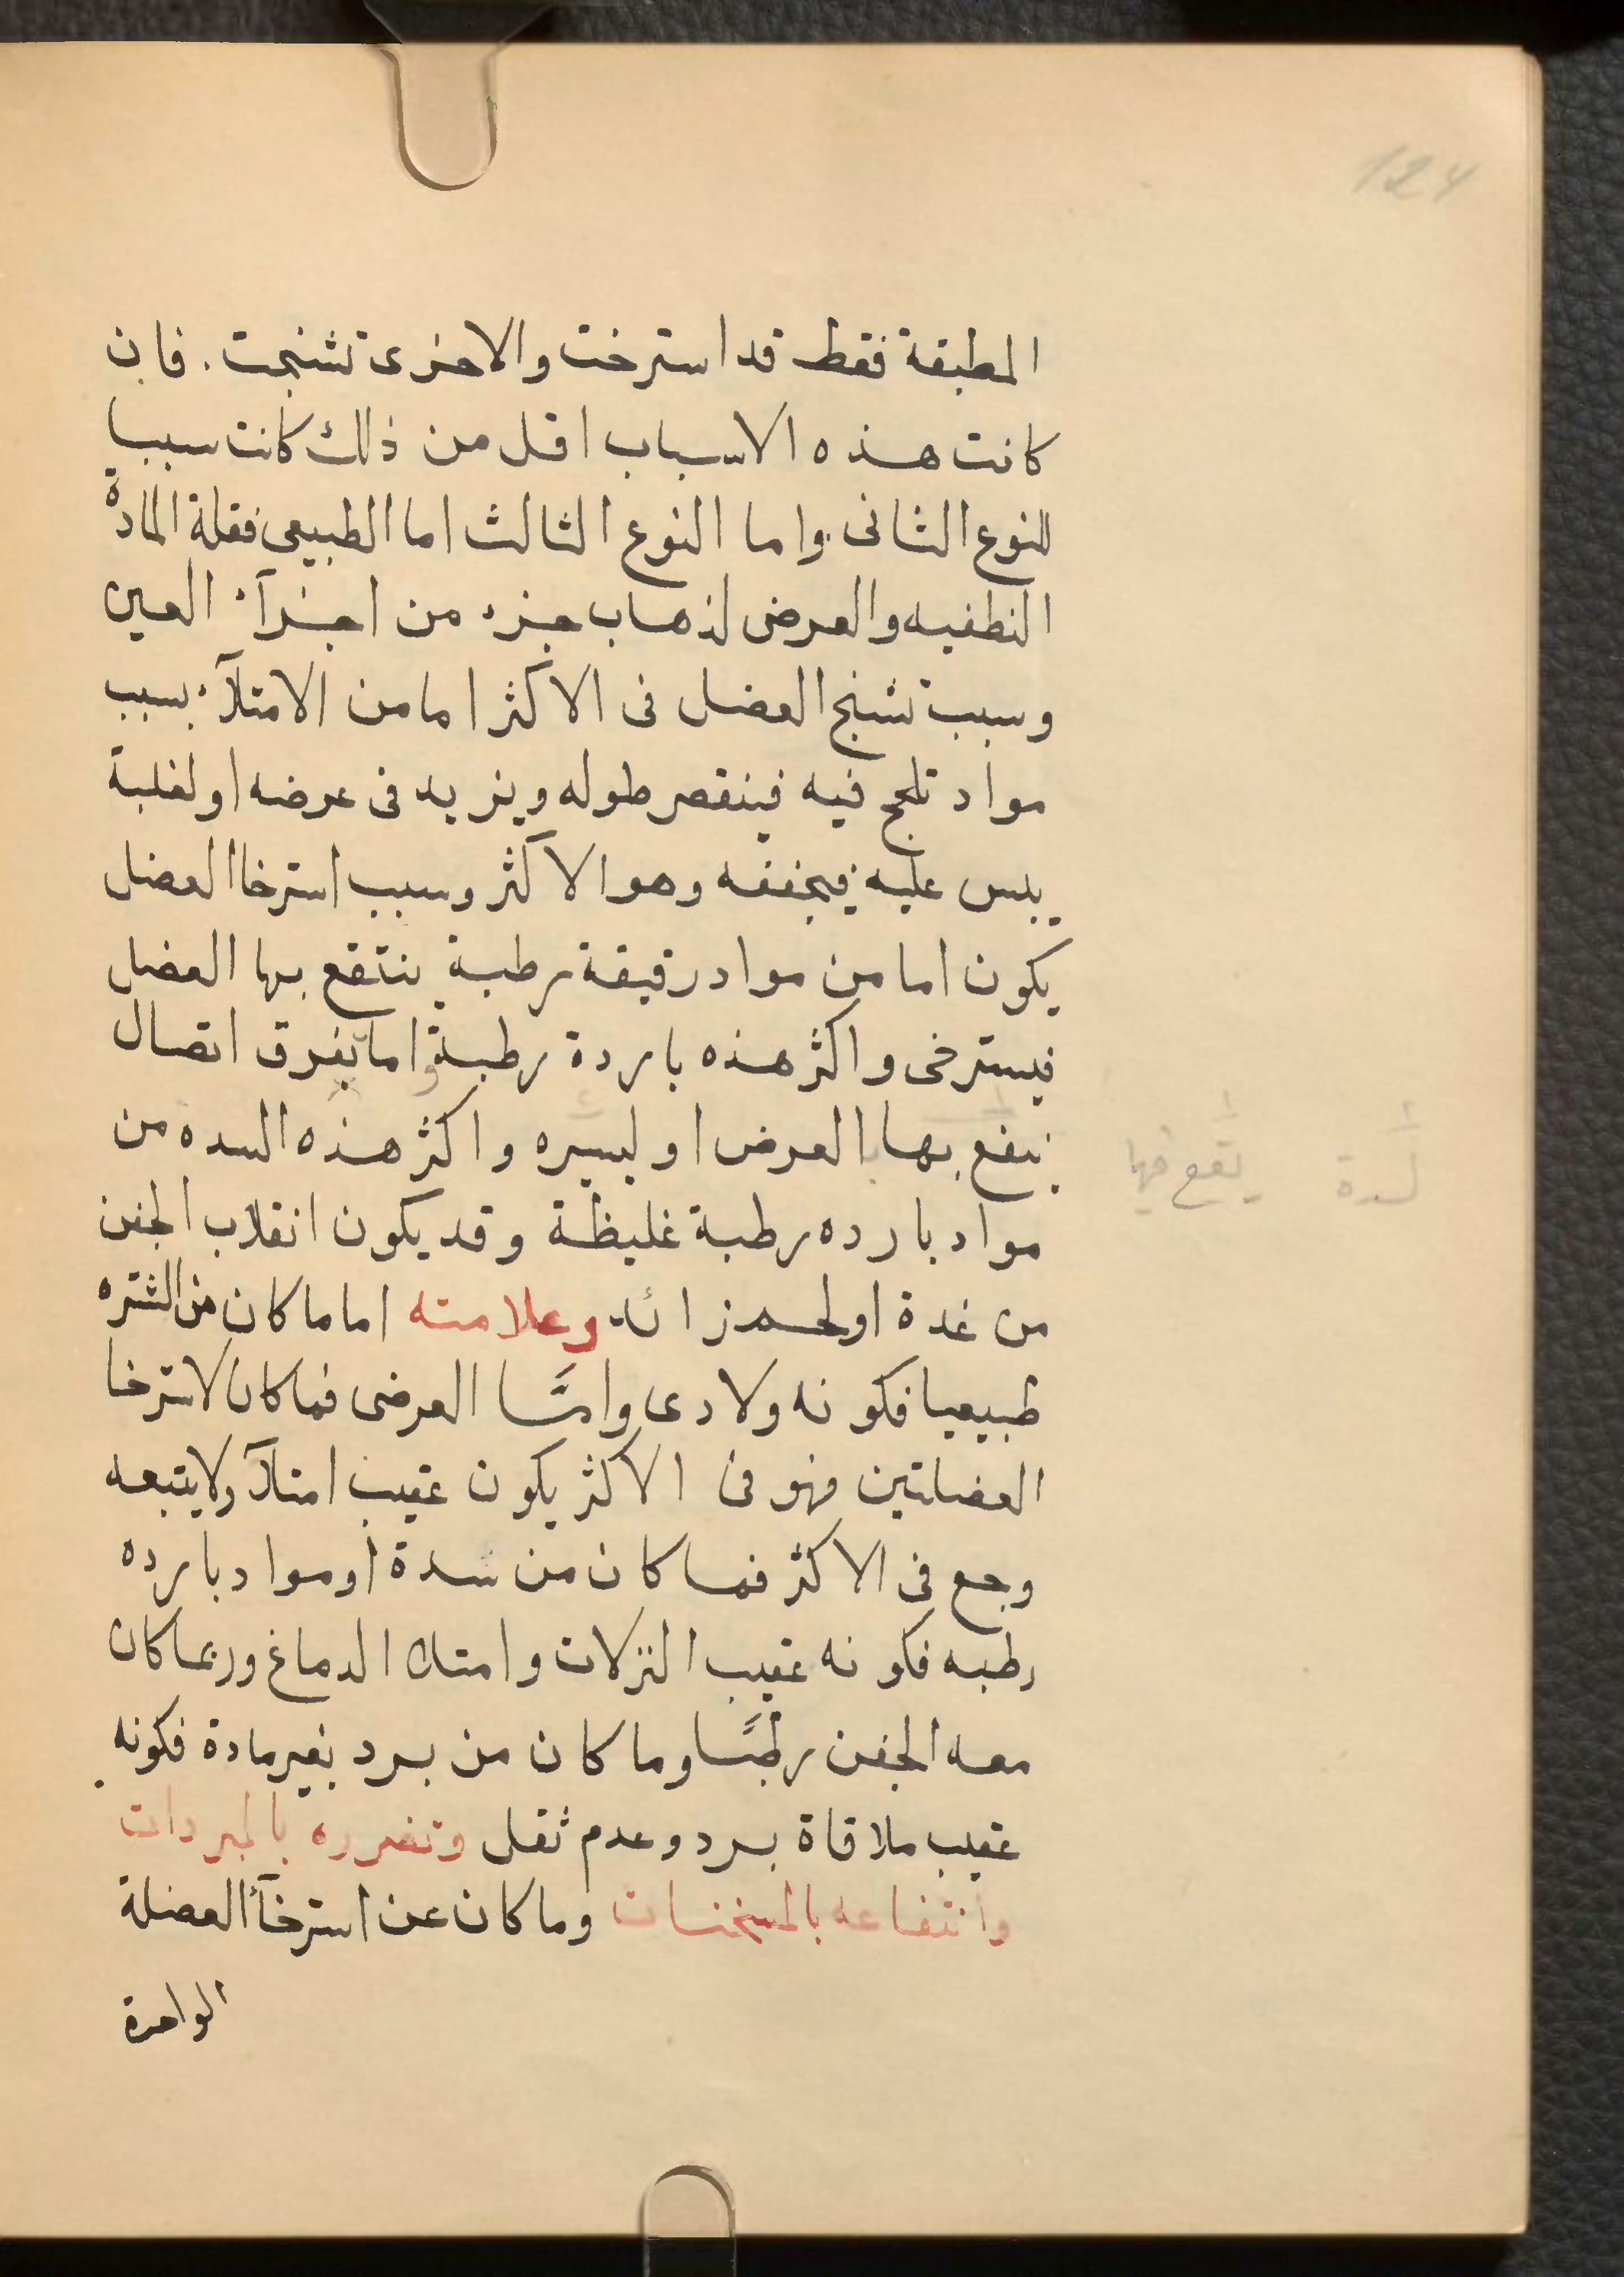 124
المطبقة فقط قد استرخت والاخرى تشنجت. فان
كانت هذه الاسباب اقل من ذلك كانت سببا
للنوع الثانى واما النوع الثالث اما الطبيعى فقلة المادة
النطفيه والعرض لذهاب جزء من اجزآء العين
وسبب تشنج العضل فى الاكثر اما من الامتلآء بسبب
مواد تلحج فيه فينقص طوله ويزيد فى عرضه او لغلبة
يبس عليه فيجففه وهو الاكثر وسبب استرخا العضل
يكون اما من مواد رقيقة رطبة ينتقع بها العضل
فيسترخى واكثر هذه باردة رطبة واما بفرق اتصال
ينفع بها العرض او ليسيره واكثر هذه السده من
يقع فيها
لسدة
مواد بارده رطبة غليظة وقد يكون انقلاب الجفن
من غدة او لحم زائد وعلامته اما ما كان من الشتره
طبيعيا فكونه ولادى وامَّا العرضى فما كان لاسترخا
العضلتين فهو فى الاكثر يكون عقيب امتلآ ولا يتبعه
وجع فى الاكثر فما كان من سدة او مواد بارده
رطبه فكونه عقيب النزلات وامتلا الدماغ وربما كان
معه الجفن رطبًا وما كان من برد بغير مادة فكونه
عقيب ملاقاة برد وعدم ثقل وتضرره بالمبردات
وانتفاعه بالمسخنات وما كان عن استرخآء العضلة
الواحدة